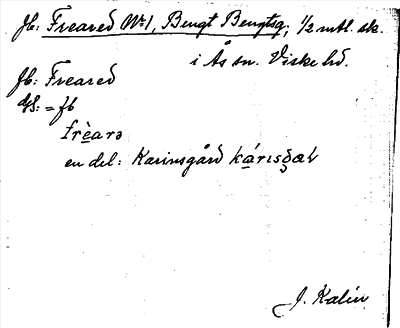 Jb: Freared No 1, Bengt Bengtsg; 1/2 mtl. sk.
i Ås sn. Viske hd.
Jb: Freared
GS: = Jb
frèarə
en del: Karinsgård
J. Kalén